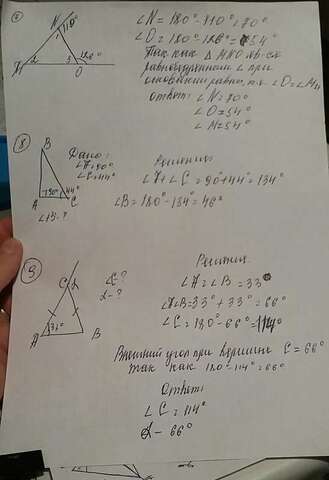 N 110°
2 3 126°
O
∠N = 180° - 110° = 70°
∠O = 180° - 126° = 54°
Так как Δ MNO
равнобедренный ∠ при
основании равно, т.к. ∠O = ∠M
ответ: ∠N = 70°
∠O = 54°
∠M = 54°
8
B
A 90° 44° C
∠B - ?
Дано:
∠A = 90°
∠C = 44°
Решение
∠A + ∠C = 90° + 44° = 134°
∠B = 180° - 134° = 46°
9
C α
A 33° B
∠C - ?
α - ?
Решение
∠A = ∠B = 33°
∠A + ∠B = 33° + 33° = 66°
∠C = 180° - 66° = 114°
Внешний угол при вершине C = 66°
так как 180° - 114° = 66°
Ответ:
∠C = 114°
α - 66°